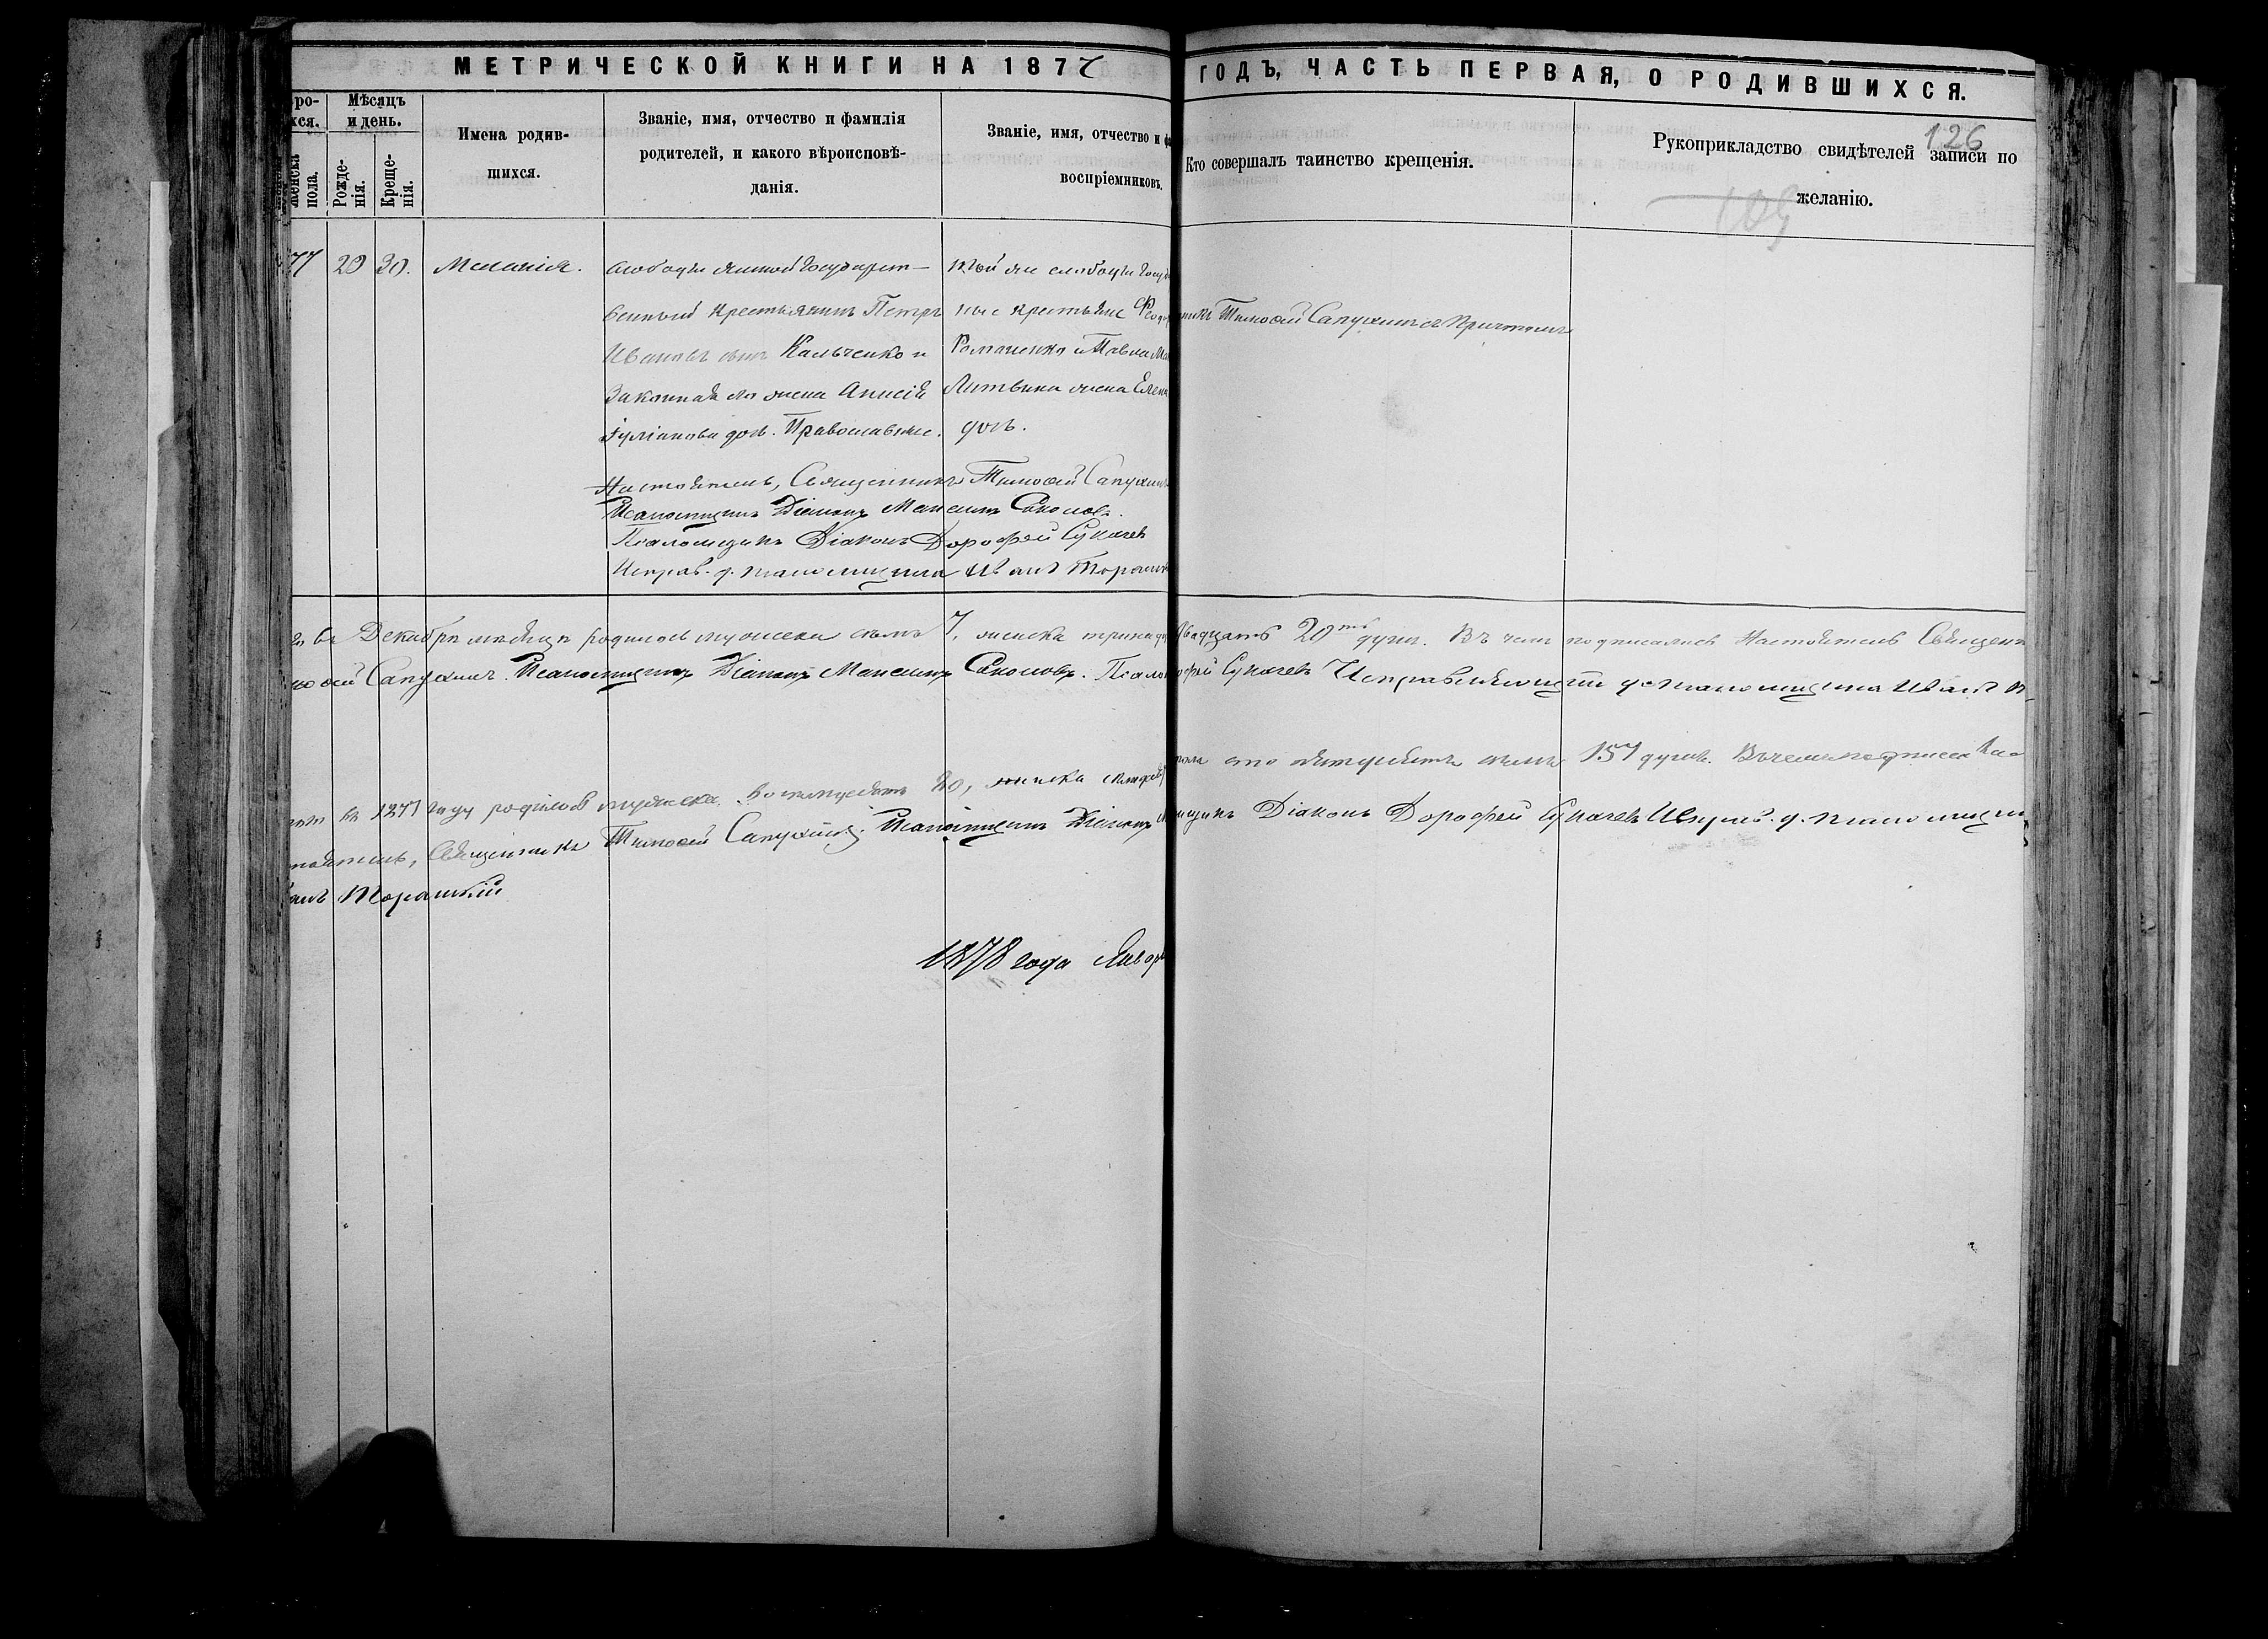 МЕТРИЧЕСКОЙ КНИГИ НА 1877 ГОДЪ, ЧАСТЬ ПЕРВАЯ, О РОДИВШИХСЯ.
126
ро-
хся.
женска
пола.
Мѣсяцъ
и день.
Рожде-
нія.
Креще-
нія.
Имена родив-
шихся.
Званіе, имя, отчество и фамилія
родителей, и какого вѣроисповѣ-
данія.
Званіе, имя, отчество и фа
воспріемниковъ.
Кто совершалъ таинство крещенія.
Рукоприкладство свидѣтелей записи по
желанію.
109
77 29 30. Меланія.
слободы Государст-
венный крестьянинъ Петръ
Ивановъ сынъ Кальченко и
Законная его жена Анисія
Іуліанова доч. Православные.
той же слободы
ные крестьяне
Романенко и Павла
Литвина жена Елена
доч.
Тимофей Сапухинъ съ Причтомъ
Настоятель, Священникъ Тимофей Сапухинъ
Псаломщикъ Діаконъ Максимъ Соколовъ.
Псаломщикъ Діаконъ Дорофей Сукачевъ
Исправ. д. псаломщика Иванъ
въ Декабрѣ мѣсяцѣ родилось мужеска семь 7, женска двадцать 20ть душъ. Въ чемъ подписались Настоятель Священ
Сапухинъ. Псаломщикъ Діаконъ Максимъ Соколовъ. Сукачевъ Исправляющій д. псаломщика Иванъ
въ 1877 году родилось мужеска восемьдесятъ 80, женска сто пятьдесятъ семь 157 душъ. Въ чемъ
Священникъ Тимофей Сапухинъ. Псаломщикъ Діаконъ Діаконъ Дорофей Сукачевъ Исправ. д. псаломщи
1878 года Январ